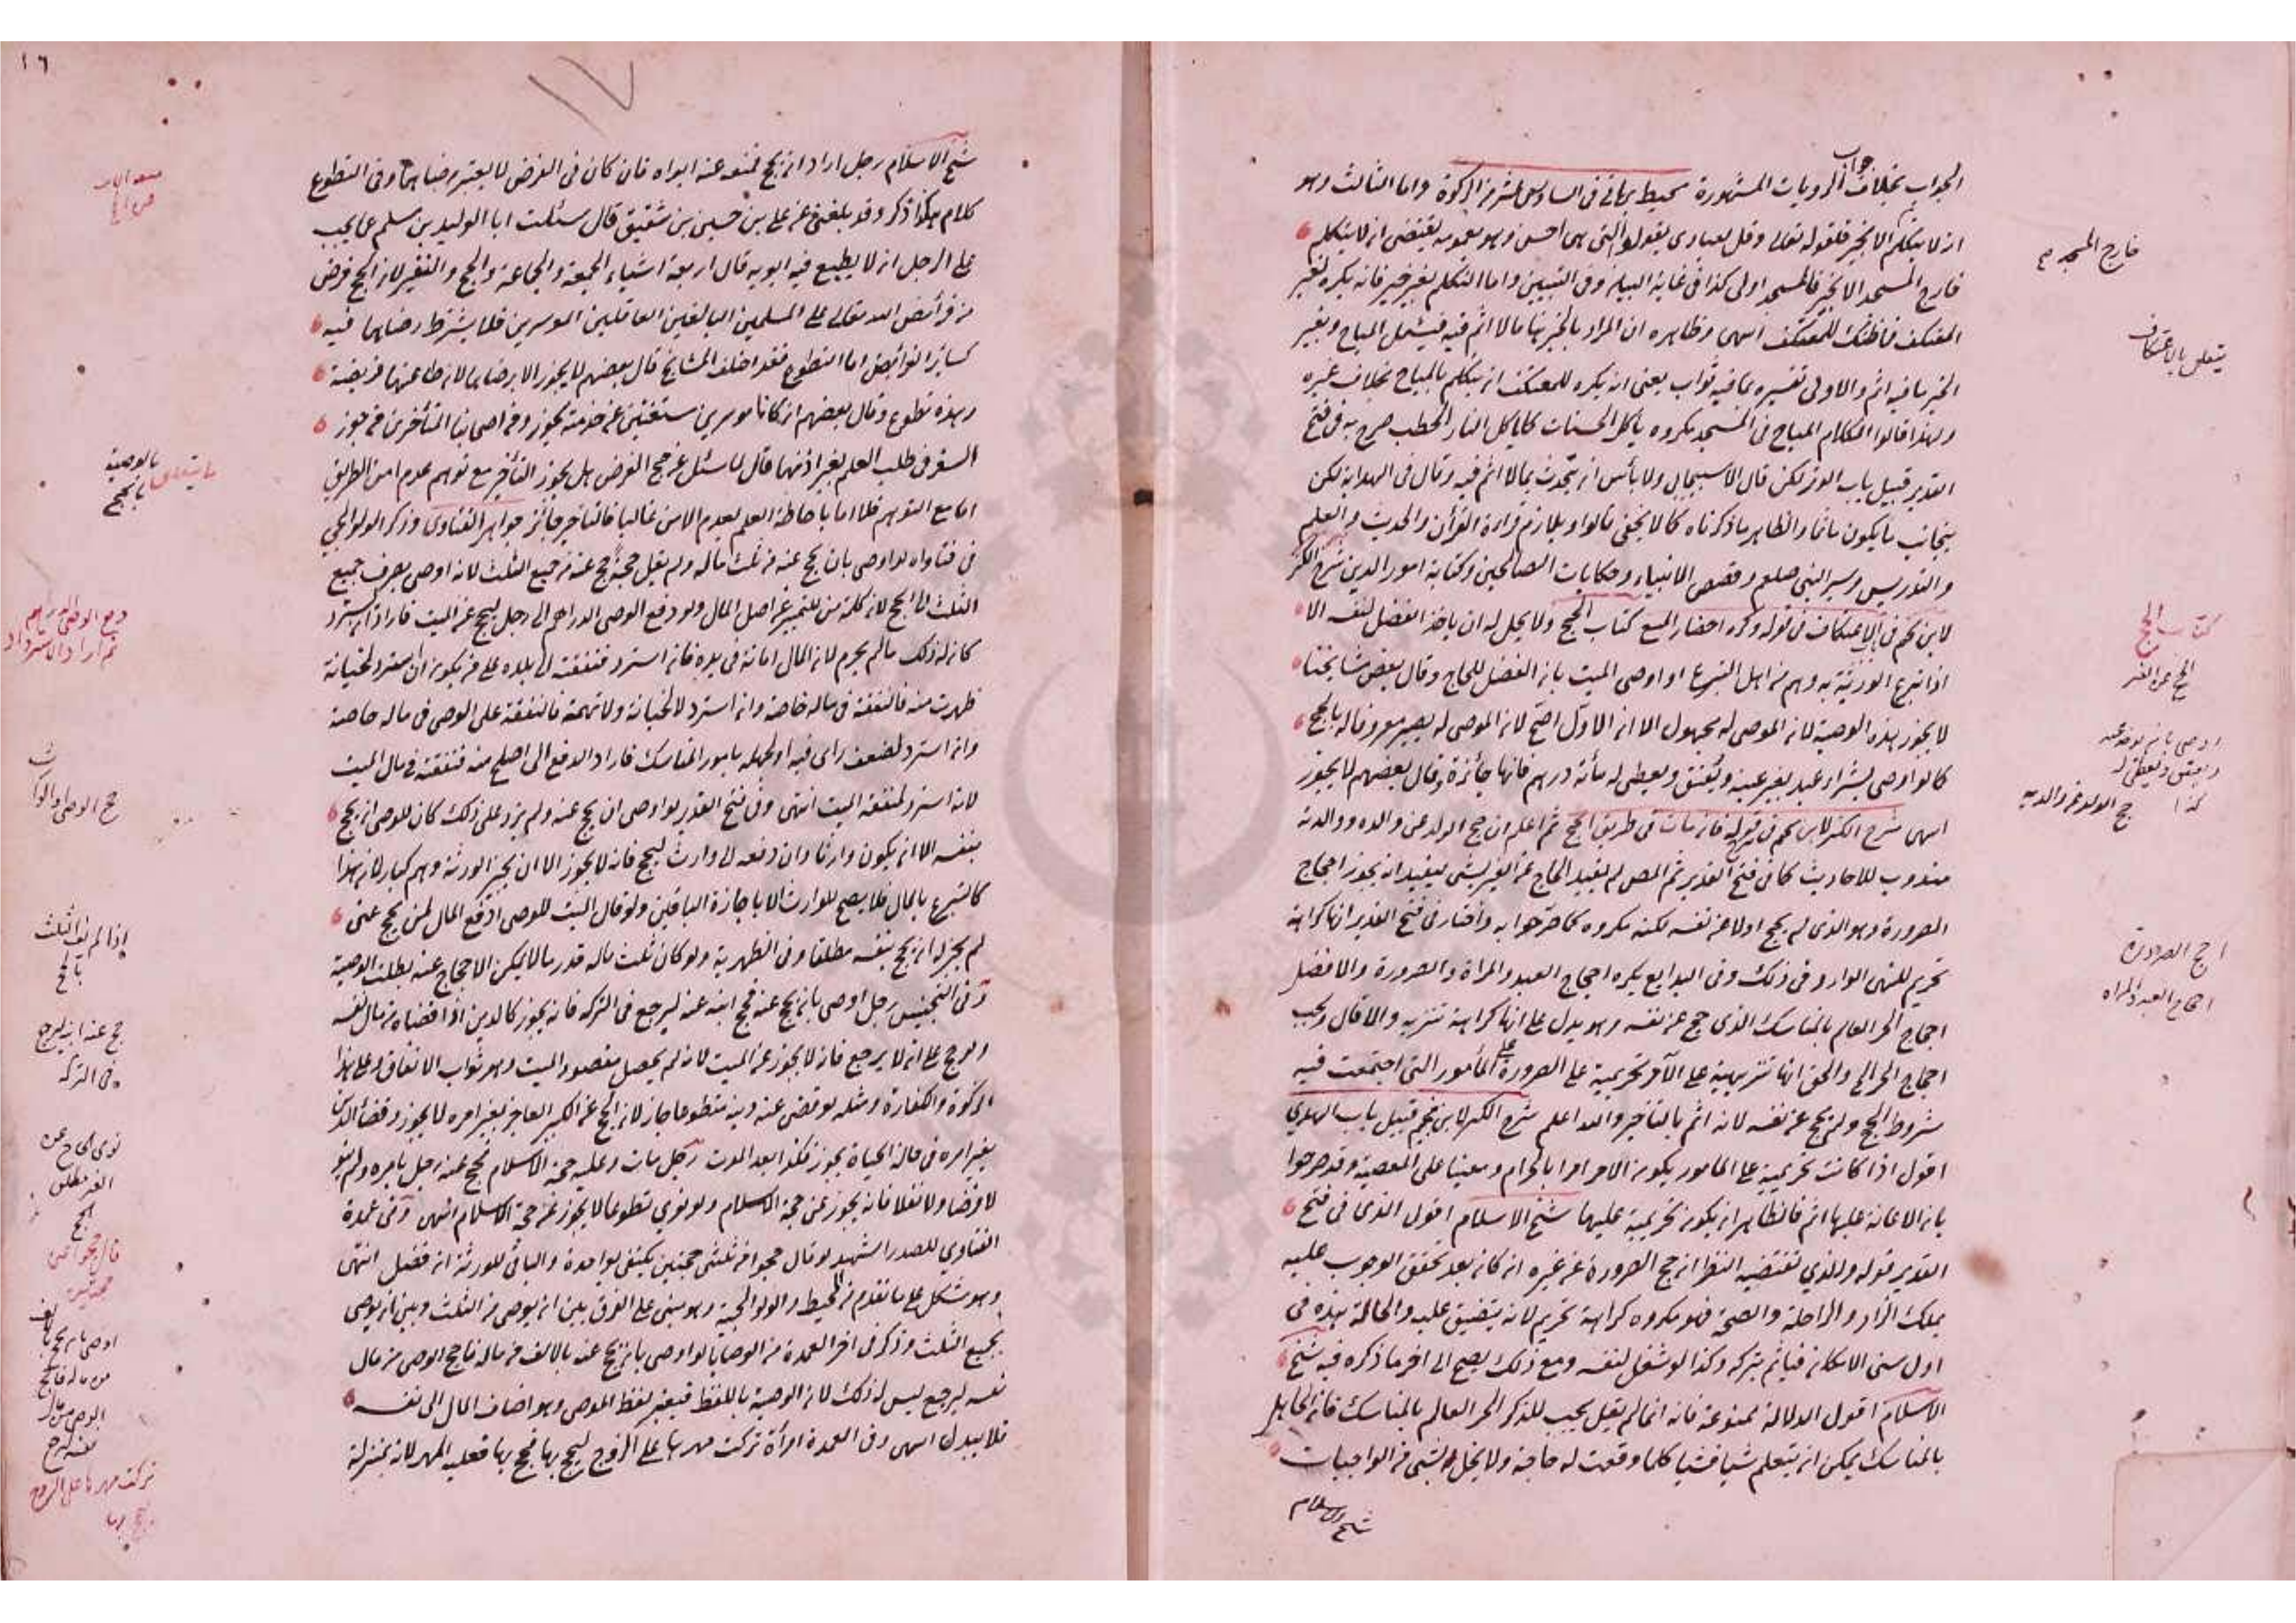 الجواب بخلاف جواب الروايات المشهورة محيط برهاني في السادس عشر من الزكوة واما الثالث وهو
ان لا يتكلم الا بخير فلقوله تعالى وقل لعبادى يقولوا التي هى احسن وهو بعمومه يقتضى ان لا يتكلم
خارج المسجد الا بخير فالمسجد اولى كذا فى غاية البيان وفى التبيين واما التكلم بغير خير فانه يكره لغير
المعتكف فما ظنك للمعتكف انتهى وظاهره ان المراد بالخير هنا ما لا اثم فيه فيشمل المباح وبغير
الخير ما فيه اثم والاولى تفسيره بما فيه ثواب يعنى انه يكره للمعتكف ان يتكلم بالمباح بخلاف غيره
ولهذا قالوا الكلام المباح فى المسجد مكروه ياكل الحسنات كما ياكل النار الحطب صرح به فى فتح
القدير قبيل باب الوتر لكن قال الاسبيجابى ولا بأس ان يتحدث بما لا اثم فيه وقال فى الهداية لكن
يتجانب ما يكون ماثما والظاهر ما ذكرناه كما لا يخفى قالوا ويلازم قراءة القرآن والحديث والعلم
والتدريس وسير النبى صلعم وقصص الانبياء وحكايات الصالحين وكتابة امور الدين شرح الكنز
لابن نجيم فى الاعتكاف فى قوله وكره احضار المبيع كتاب الحج ولا يحل له ان ياخذ الفضل لنفسه الا
اذا تبرع الورثة به وهم من اهل التبرع او اوصى الميت بان الفضل للحاج وقال بعض مشايخنا
لا يجوز هذه الوصية لان الموصى له مجهول الا ان الاول اصح لان الموصى له يصير معروفا له بالحج
كما لو اوصى بشراء عبد بغير عينه ويعتق ويعطى له مأة درهم فانها جائزة وقال بعضهم لا يجوز
انتهى شرح الكنز لابن نجيم فى قوله فان مات فى طريق الحج ثم اعلم ان حج الولد عن والده ووالدته
مندوب للاحاديث كما فى فتح القدير ثم المص لم يقيد الحاج عن الغير بشى ليفيد انه يجوز احجاج
الصرورة وهو الذى لم يحج اولا عن نفسه لكنه مكروه كما صرحوا به واختار فى فتح القدير انها كراهة
تحريم للنهى الوارد فى ذلك وفى البدايع يكره احجاج العبد والمراة والصرورة والافضل
احجاج الحر العالم بالمناسك الذى حج عن نفسه وهو يدل على انها كراهة تنزيه والا قال ويجب
احجاج الحر الخ والحق انها تنزيهية على الآمر تحريمية على الصرورة على المأمور التى اجتمعت فيه
شروط الحج ولم يحج عن نفسه لانه اثم بالتاخير والله اعلم شرح الكنز لابن نجيم قبيل باب الهدي
اقول اذا كانت تحريمية على المامور يكون الامر امرا بالحرام ومعينا على المعصية وقد صرحوا
بان الاعانة عليها اثم فالظاهر ان يكون تحريمية عليها شيخ الاسلام اقول الذى فى فتح
القدير قوله والذي تقتضيه النظر ان حج الصرورة عن غيره ان كان بعد تحقق الوجوب عليه
بملك الزاد والراحلة والصحة فهو مكروه كراهة تحريم لانه يتضيق عليه والحالة هذه فى
اول سنى الامكان فياثم بتركه وكذا لو تنفل لنفسه ومع ذلك يصح الى اخر ما ذكره فيه شيخ
الاسلام اقول الدلالة ممنوعة فانه انما لم يقل يجب للذكر الحر العالم بالمناسك فان الجاهل
بالمناسك يمكن ان يتعلم شيا فشيا كلما وقعت له حاجة ولا يخل بشى من الواجبات
شيخ الاسلام
خارج المسجد
يتعلق بالاعتكاف
كتاب الحج
الحج عن الغير
حج الولد عن والديه
احجاج العبد والمراه
١٦
١٧
شيخ الاسلام رجل اراد ان يحج فمنعه عنه ابواه فان كان فى الفرض لا يعتبر رضاهما وفى التطوع
كلام هكذا ذكر وقد بلغنى عن على بن حسين بن شقيق قال سئلت ابا الوليد بن مسلم عما يجب
على الرجل ان لا يطيع فيه ابويه قال اربعة اشياء الجمعة والجماعة والحج والنفير لان الحج فرض
من فرائض الله تعالى على المسلمين البالغين العاقلين الموسرين فلا يشترط رضاهما فيه
كسائر الفرائض اما التطوع فقد اختلف المشايخ قال بعضهم لا يجوز الا برضاهما لان طاعتهما فريضة
وهذه تطوع وقال بعضهم ان كانا موسرين مستغنين عن خدمته يجوز وفى اصحابنا المتأخرين من جوز
السفر فى طلب العلم بغير اذنهما قال سئل عن حج الفرض هل يجوز التأخير مع توهم عدم امن الطريق
اما مع التوهم فلا اما باحاطة العلم بعدم الامن غالبا فالتاخير جائز جواهر الفتاوى وذكر الولوالجى
فى فتاواه لو اوصى بان يحج عنه من ثلث ماله ولم يقل حجة حج عنه من جميع الثلث لانه اوصى بصرف جميع
الثلث الى الحج لان كلمة من للتمييز عن اصل المال ولو دفع الوصى الدراهم الى رجل ليحج عن الميت فاراد ان يسترد
كان له ذلك ما لم يحرم لان المال امانة فى يده فان استرد فنفقته الى بلده على من يكون ان استرد لخيانة
ظهرت منه فالنفقة فى ماله خاصة وان استرد لا لخيانة ولا تهمة فالنفقة على الوصى فى ماله خاصة
وان استرد لضعف راى فيه او لجهله بامور المناسك فاراد الدفع الى اصلح منه فنفقته فى مال الميت
لانه استرد لمنفعة الميت انتهى وفى فتح القدير لو اوصى ان يحج عنه ولم يزد على ذلك كان للوصى ان يحج
بنفسه الا ان يكون وارثا وان دفعه الى وارث ليحج فانه لا يجوز الا ان يجيز الورثة وهم كبار لان هذا
كالتبرع بالمال فلا يصح للوارث الا باجازة الباقين ولو قال الميت للوصى ادفع المال لمن يحج عنى
لم يجز له ان يحج بنفسه مطلقا وفى الظهيرية ولو كان ثلث ماله قدر ما لا يمكن الاحجاج عنه بطلت الوصية
وفى التجنيس رجل اوصى بان يحج عنه فحج ابنه عنه ليرجع فى التركة فانه يجوز كالدين اذا قضاه من مال نفسه
ولو حج على ان لا يرجع فانه لا يجوز عن الميت لانه لم يحصل مقصود الميت وهو ثواب الانفاق وعلى هذا
الزكوة والكفارة ومثله لو قضى عنه دينه متطوعا جاز لان الحج عن الكبير العاجز بغير امره لا يجوز وقضاء الدين
بغير امره فى حالة الحياة يجوز فكذا بعد الموت رجل مات وعليه حجة الاسلام فحج عنه رجل بامره ولم ينو
لا فرضا ولا نفلا فانه يجوز عن حجة الاسلام ولو نوي تطوعا لا يجوز عن حجة الاسلام انتهى وفى عمدة
الفتاوي للصدر الشهيد لو قال حجوا من ثلثى حجتين يكتفى بواحدة والباقى للورثة ان فضل انتهى
وهو مشكل على ما تقدم من المحيط والولوالجية وهو مبنى على الفرق بين ان يوصى من الثلث وبين ان يوصى
بجميع الثلث وذكر فى اخر العمدة من الوصايا لو اوصى بان يحج عنه بالالف من ماله فاحج الوصى من مال
نفسه ليرجع ليس له ذلك لان الوصية باللفظ فيعتبر لفظ الموصى وهو اضاف المال الى نفسه
فلا يبدل انتهى وفى العمدة امرأة تركت مهرها على الزوج ليحج بها فحج بها فعليه المهر لانه بمنزلة
بالوصية
بالحج
اذا لم يف الثلث
بالحج
حج عنه ابنه ليرجع
فى التركه
نوى الحاج عن
الغير مطلق
الحج
اوصى بان يحج بالف
من ماله فاحج
الوصى من مال
نفسه ليرجع
تركت مهرها على الزوج